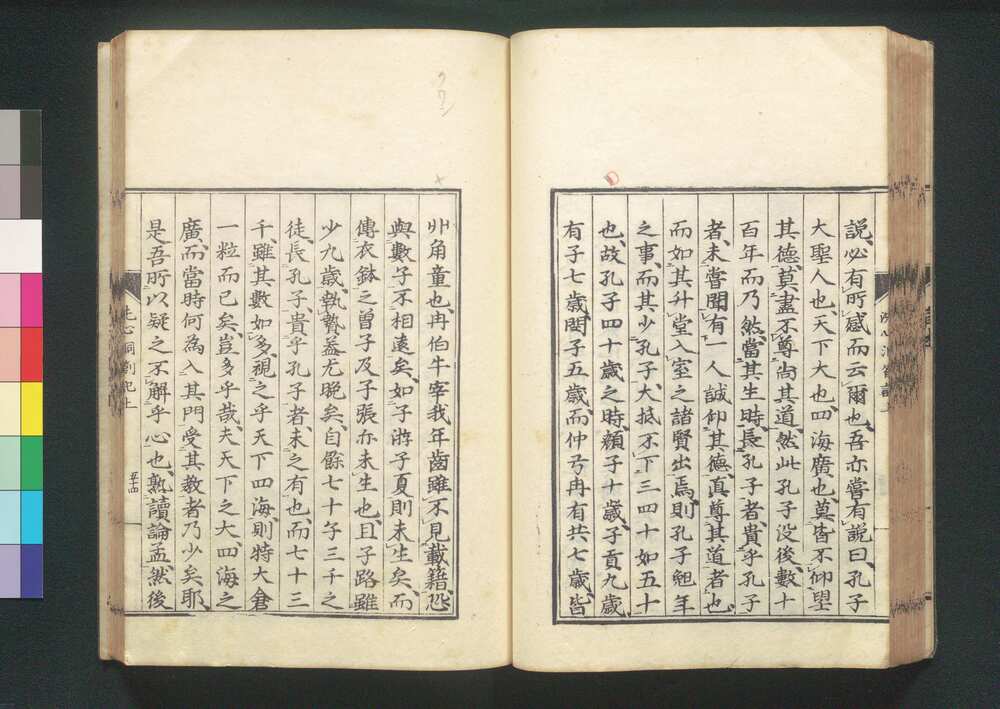 説必有所感而云爾也吾亦嘗有説曰孔子
大聖人也天下大也四海廣也莫皆不仰望
其德莫盡不尊尚其道然此孔子没後數十
百年而乃然當其生時長孔子者貴乎孔子
者未嘗聞有一人誠仰其德真尊其道者也
而如其升堂入室之諸賢出焉則孔子強年
之事而其少孔子大抵不下三四十如五十
也故孔子四十歲之時顔子十歲子貢九歲
有子七歲閔子五歲而仲弓冉有共七歲皆
丱角童也冉伯牛宰我年齒雖不見載籍恐
與數子不相遠矣如子游子夏則未生矣而
傳衣鉢之曽子及子張亦未生也且子路雖
少九歲執贄益尤晚矣自餘七十子三千之
徒長孔子貴乎孔子者未之有也而七十三
千雖其數如多視之乎天下四海則特大倉
一粒而已矣豈多乎哉夫天下之大四海之
廣而當時何為入其門受其教者乃少矣耶
是吾所以疑之不解乎心也熟讀論孟然後
洗心洞劄記上
五十四
クワン
D